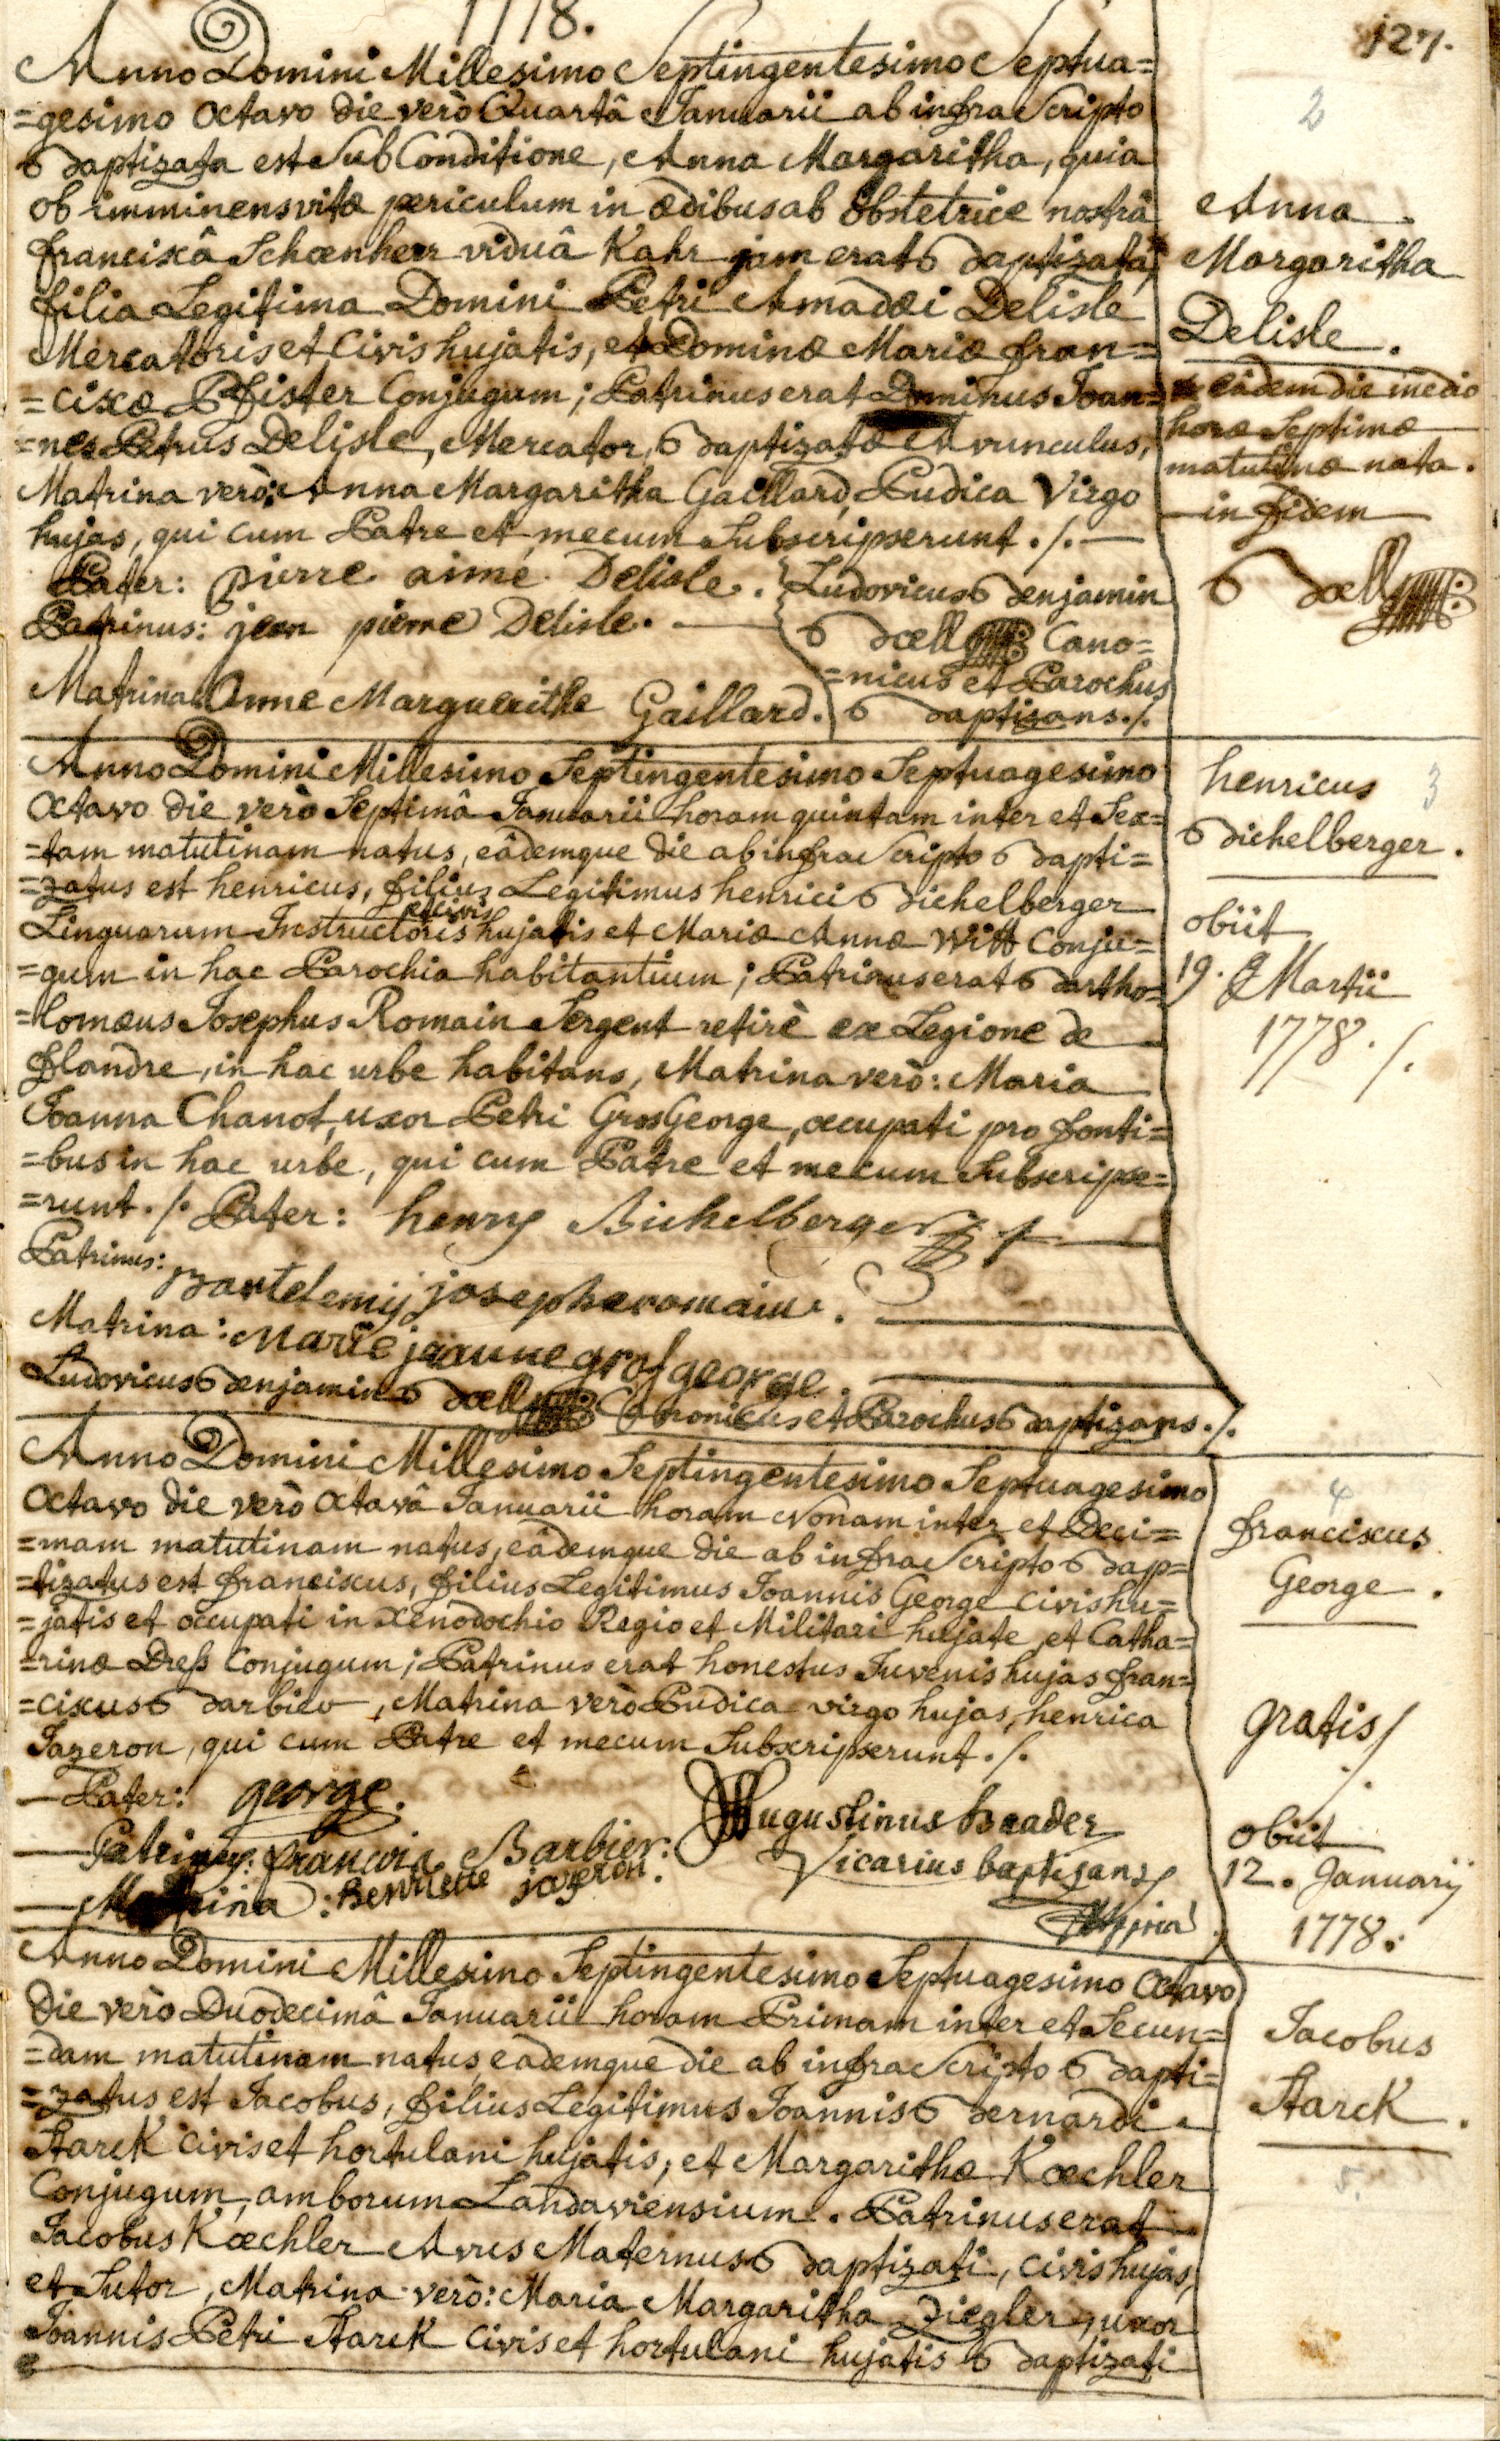 1778.
127.
Anno Domini Millesimo Septingentesimo Septua=
=gesimo Octavo die verò Quartâ Januarii ab infra Scripto
Baptizata est Sub Conditione, Anna Margaritha, quia
ob imminens vitæ periculum in ædibus ab obstetrice nostrâ
franciscâ Schœnherr viduâ Kahr jam erat Baptizata,
filia Legitima Domini Petri Amadæi Delisle
Mercatoris et Civis hujatis, et Dominæ Mariæ fran=
=ciscæ Pfister Conjugum; Patrinus erat Dominus Joan=
=nes Petrus Delisle, Mercator, Baptizatæ Avunculus,
Matrina verò: Anna Margaritha Gaillard, Pudica Virgo
hujas, qui cum Patre et mecum Subscripserunt ./.
Pater: pierre aime Delisle.
Patrinus: jean pierre Delisle.
Matrina: Anne Marguerithe Gaillard.
Ludovicus Benjamin
Bœll Cano=
=nicus et Parochus
Baptizans ./.
2
Anna
Margaritha
Delisle.
eâdem die mediâ
horæ Septimæ
matutinæ nata.
in fidem
Bœll
Anno Domini Millesimo Septingentesimo Septuagesimo
Octavo die verò Septimâ Januarii horam quintam inter et Sex=
=tam matutinam natus, eâdemque die ab infra Scripto Bapti=
=zatus est henricus, filius Legitimus henrici Bichelberger
et civis
Linguarum Instructoris hujatis et Mariæ Annæ Witt Conju=
=gum in hac Parochia habitantium; Patrinus erat Bartho=
=lomæus Josephus Romain Sergent retirè ex Legione de
flandre, in hac urbe habitans, Matrina verò: Maria
Joanna Chanot, uxor Petri GrosGeorge, occupati pro fonti=
=bus in hac urbe, qui cum Patre et mecum Subscripse=
=runt ./. Pater: henry Bichelberger
Patrinus: Bartelemij joseph romain.
Matrina: Marie jeanne grosgeorge.
Ludovicus Benjamin Bœll Canonicus et Parochus Baptizans ./.
henricus 3
Bichelberger.
obiit
19. Martii
1778 ./.
Anno Domini Millesimo Septingentesimo Septuagesimo
Octavo die verò Octavâ Januarii horam Nonam inter et Deci=
=mam matutinam natus, eâdemque die ab infra Scripto Bap=
=tizatus est franciscus, filius Legitimus Joannis George Civis hu=
=jatis et occupati in Xenodochio Regio et Militari hujate, et Catha=
=rinæ Dreß Conjugum; Patrinus erat honestus Juvenis hujas fran=
=ciscus Barbier, Matrina verò Pudica virgo hujas, henrica
Jazeron, qui cum Patre et mecum Subscripserunt ./.
Pater: george.
Patrinus: francois Barbier.
Matrina: henriette jazeron.
Augustinus baader
Vicarius baptizans
4
franciscus
George.
gratis
./.
obiit
12. Januarij
1778.
Anno Domini Millesimo Septingentesimo Septuagesimo Octavo
die verò Duodecimâ Januarii horam Primam inter et Secun=
=dam matutinam natus, eâdemque die ab infra Scripto Bapti=
=zatus est Jacobus, filius Legitimus Joannis Bernardi
Starck civis et hortulani hujatis, et Margarithæ Kœchler
Conjugum, amborum Landaviensium. Patrinus erat
Jacobus Kœchler Avus Maternus Baptizati, civis hujas,
et Sutor, Matrina verò: Maria Margaritha Ziegler, uxor
Joannis Petri Starck civis et hortulani hujatis Baptizati
Jacobus
Starck.
5.